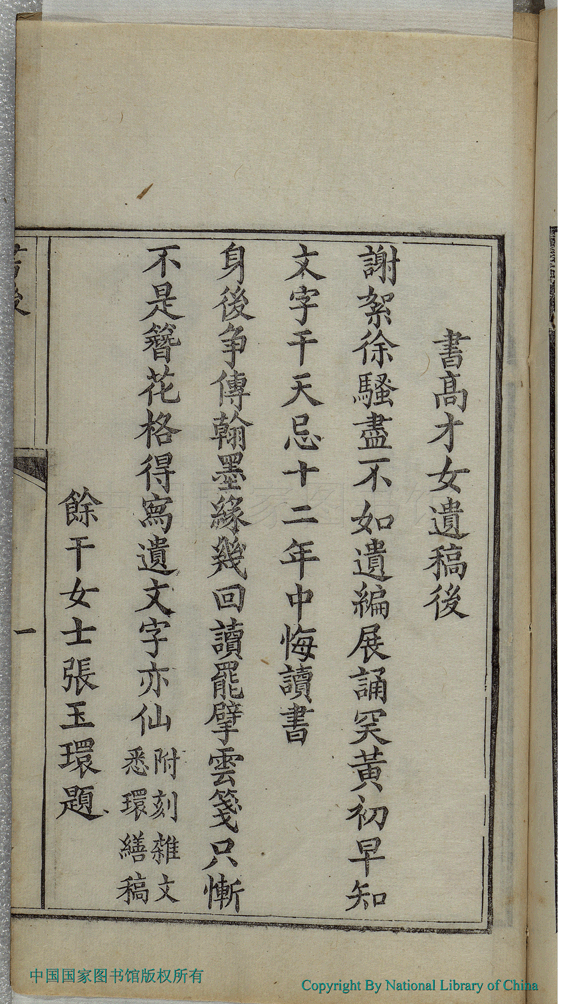 書高才女遺稿後
謝絮徐騷盡不如遺編展誦突黃初早知
文字干天忌十二年中悔讀書
身後爭傳翰墨緣幾回讀罷擘雲箋只慚
不是簪花格得寫遺文字亦仙
附刻雜文
悉環繕稿
餘干女士張玉環題
書後
一
中国国家图书馆版权所有
Copyright By National Library of China